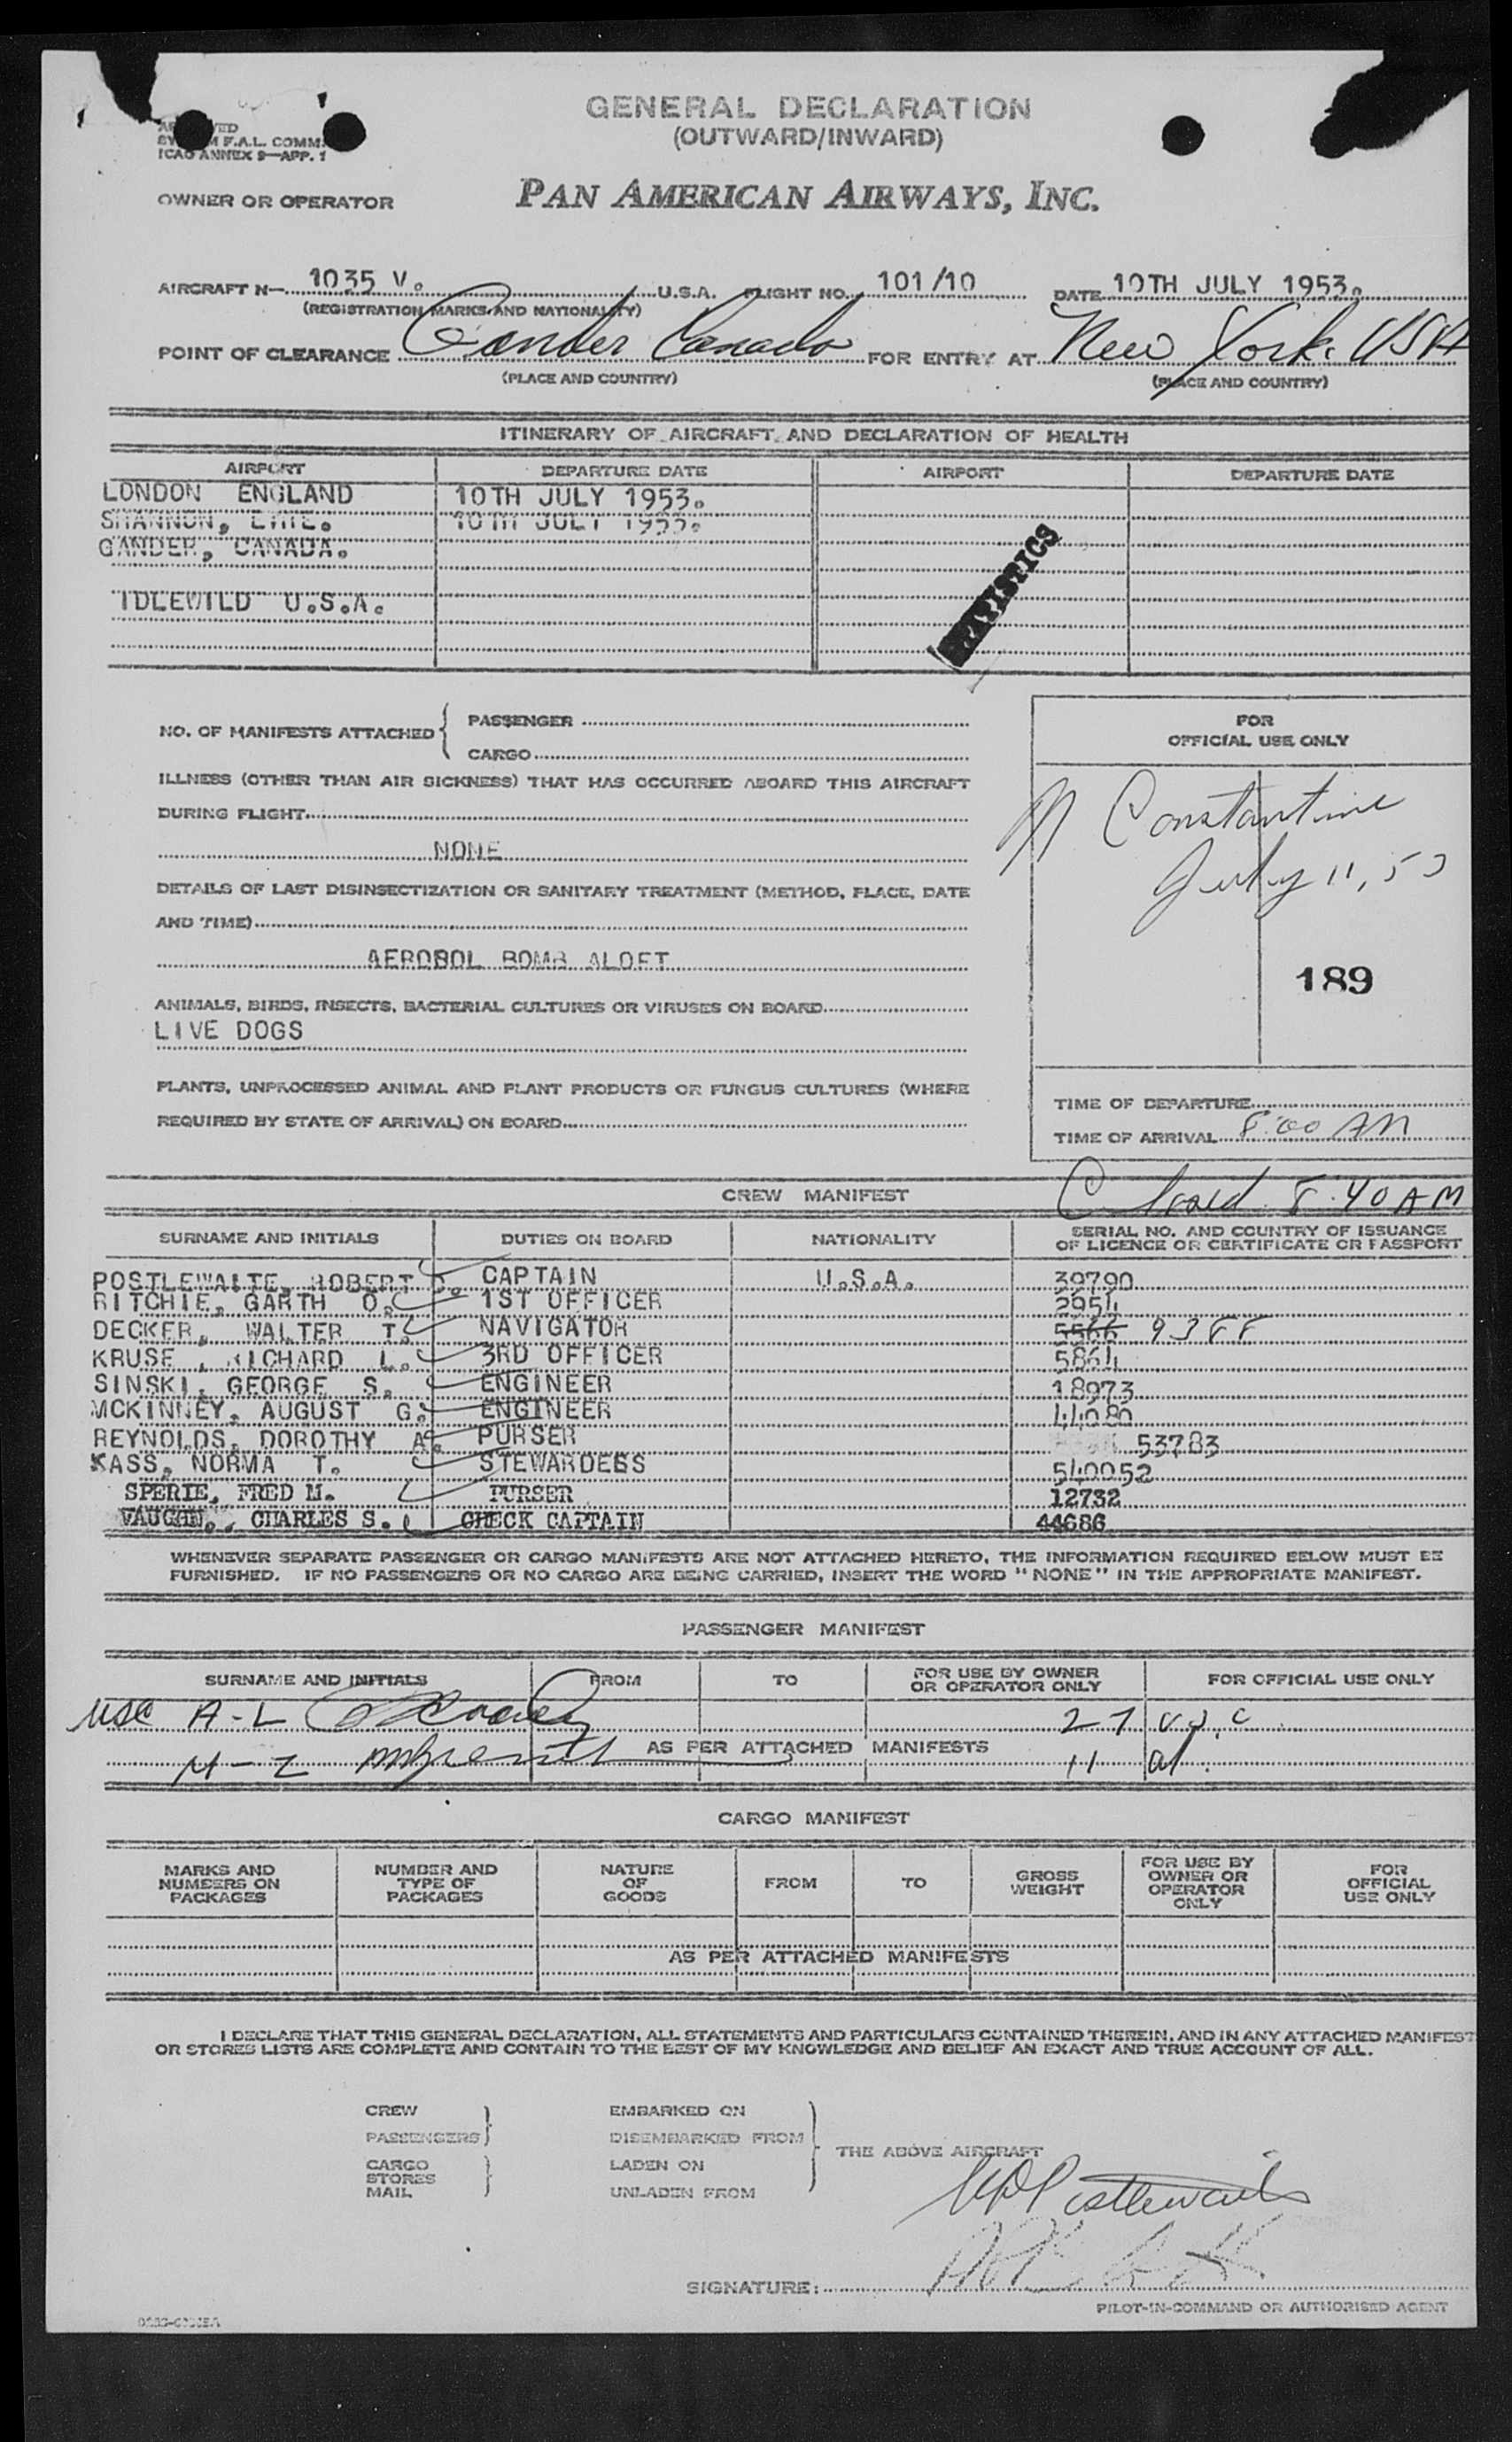 GENERAL DECLARATION
(OUTWARD/INWARD)
F.A.L. COMM.
ICAO ANNEX 9—APP. 1
OWNER OR OPERATOR PAN AMERICAN AIRWAYS, INC.
AIRCRAFT N— 1035 V. U.S.A. FLIGHT NO. 101/10 DATE 10TH JULY 1953.
(REGISTRATION MARKS AND NATIONALITY)
POINT OF CLEARANCE Gander Canada FOR ENTRY AT New York USA
(PLACE AND COUNTRY) (PLACE AND COUNTRY)
ITINERARY OF AIRCRAFT AND DECLARATION OF HEALTH
AIRPORT DEPARTURE DATE AIRPORT DEPARTURE DATE
LONDON ENGLAND 10TH JULY 1953.
SHANNON, EIRE. 10TH JULY 1953.
GANDER, CANADA.
STATISTICS
IDLEWILD U.S.A.
NO. OF MANIFESTS ATTACHED { PASSENGER
CARGO
FOR
OFFICIAL USE ONLY
ILLNESS (OTHER THAN AIR SICKNESS) THAT HAS OCCURRED ABOARD THIS AIRCRAFT
DURING FLIGHT
NONE
N Constantine
July 11, 53
DETAILS OF LAST DISINSECTIZATION OR SANITARY TREATMENT (METHOD, PLACE, DATE
AND TIME)
AEROSOL BOMB ALOFT
189
ANIMALS, BIRDS, INSECTS, BACTERIAL CULTURES OR VIRUSES ON BOARD
LIVE DOGS
PLANTS, UNPROCESSED ANIMAL AND PLANT PRODUCTS OR FUNGUS CULTURES (WHERE
REQUIRED BY STATE OF ARRIVAL) ON BOARD
TIME OF DEPARTURE
TIME OF ARRIVAL 8:00 AM
CREW MANIFEST
Closed 8:40 AM
SURNAME AND INITIALS DUTIES ON BOARD NATIONALITY SERIAL NO. AND COUNTRY OF ISSUANCE
OF LICENCE OR CERTIFICATE OR PASSPORT
POSTLEWAITE, ROBERT D. CAPTAIN U.S.A. 39790
RITCHIE, GARTH O. 1ST OFFICER 2954
DECKER, WALTER T. NAVIGATOR 5566 9388
KRUSE, RICHARD L. 3RD OFFICER 5864
SINSKI, GEORGE S. ENGINEER 18973
MCKINNEY, AUGUST G. ENGINEER 44080
REYNOLDS, DOROTHY A. PURSER 53783
KASS, NORMA T. STEWARDESS 540052
SPERIE, FRED M. PURSER 12732
VAUGHN, CHARLES S. CHECK CAPTAIN 44686
WHENEVER SEPARATE PASSENGER OR CARGO MANIFESTS ARE NOT ATTACHED HERETO, THE INFORMATION REQUIRED BELOW MUST BE
FURNISHED. IF NO PASSENGERS OR NO CARGO ARE BEING CARRIED, INSERT THE WORD "NONE" IN THE APPROPRIATE MANIFEST.
PASSENGER MANIFEST
SURNAME AND INITIALS FROM TO FOR USE BY OWNER
OR OPERATOR ONLY FOR OFFICIAL USE ONLY
USC A-L 27 USC
AS PER ATTACHED MANIFESTS
M-Z 11 al
CARGO MANIFEST
MARKS AND
NUMBERS ON
PACKAGES
NUMBER AND
TYPE OF
PACKAGES
NATURE
OF
GOODS
FROM TO
GROSS
WEIGHT
FOR USE BY
OWNER OR
OPERATOR
ONLY
FOR
OFFICIAL
USE ONLY
AS PER ATTACHED MANIFESTS
I DECLARE THAT THIS GENERAL DECLARATION, ALL STATEMENTS AND PARTICULARS CONTAINED THEREIN, AND IN ANY ATTACHED MANIFEST
OR STORES LISTS ARE COMPLETE AND CONTAIN TO THE BEST OF MY KNOWLEDGE AND BELIEF AN EXACT AND TRUE ACCOUNT OF ALL.
CREW EMBARKED ON
PASSENGERS DISEMBARKED FROM
THE ABOVE AIRCRAFT
CARGO LADEN ON
STORES
MAIL UNLADEN FROM
Postlewaite
SIGNATURE:
PILOT-IN-COMMAND OR AUTHORISED AGENT